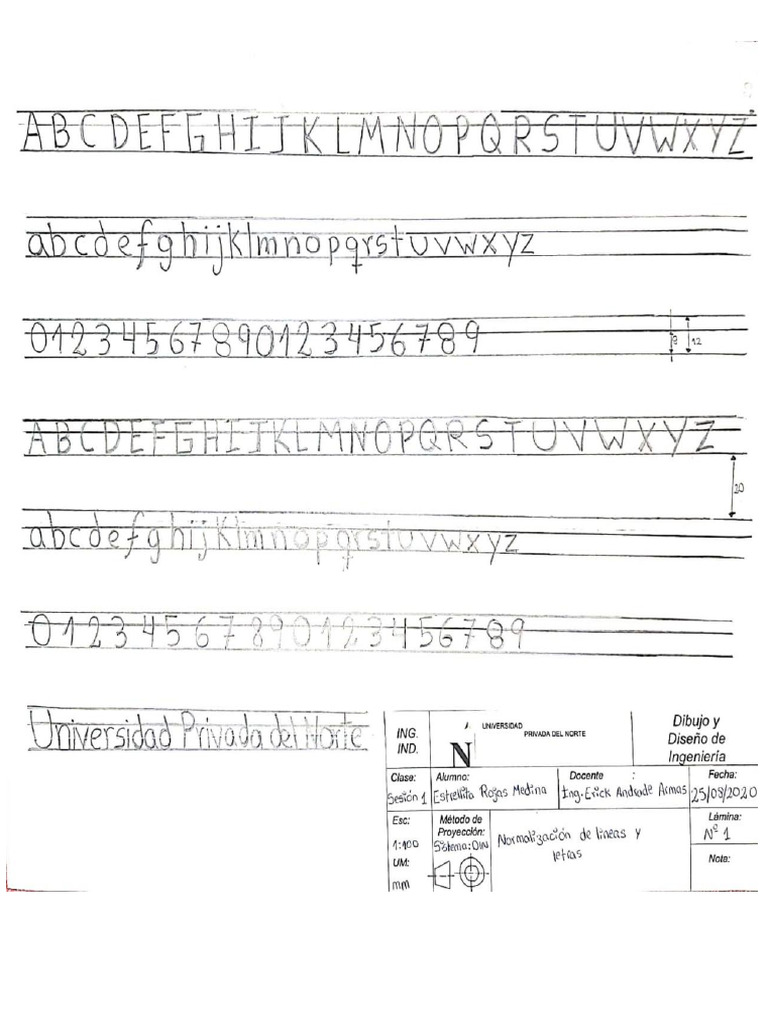 ABCDEFGHIJKLMNOPQRSTUVWXYZ
abcdefghijklmnopqrstuvwxyz
01234567890123456789
8 12
ABCDEFGHIJKLMNOPQRSTUVWXYZ
20
abcdefghijklmnopqrstuvwxyz
01234567890123456789
Universidad Privada del Norte
ING. IND.
N
UNIVERSIDAD
PRIVADA DEL NORTE
Dibujo y
Diseño de
Ingeniería
Clase:
Sesión 1
Alumno:
Estrellita Rojas Medina
Docente :
Ing. Erick Andrade Armas
Fecha:
25/08/2020
Esc:
1:100
UM:
mm
Método de
Proyección:
Sistema: DIN
Normalización de líneas y
letras
Lámina:
Nº 1
Nota: